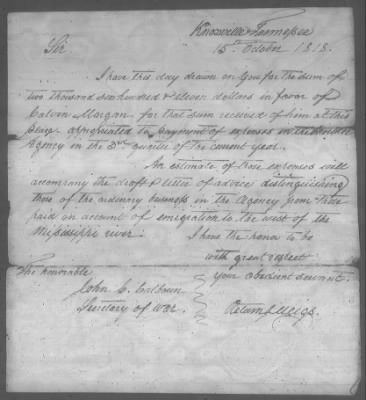 Knoxville Tennessee
15th October 1818.
Sir
I have this day drawn on you for the sum of
two thousand six hundred & eleven dollars in favor of
Calvin Morgan for that sum received of him at this
place appropriated to payment of expenses in the Cherokee
Agency in the 3rd quarter of the current year.
An estimate of these expenses will
accompany the draft & letter of advice distinguishing
those of the ordinary business in the Agency from those
paid on account of emigration to the west of the
Mississippi river. I have the honor to be
with great respect
The honorable your obedient servant
John C. Calhoun
Secretary of War. Return J. Meigs.